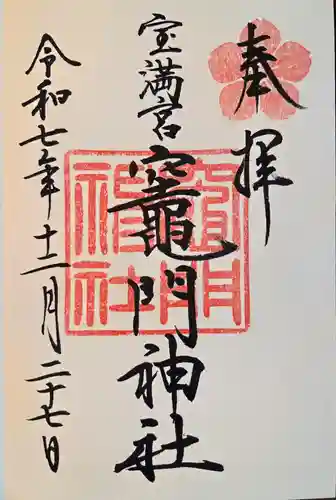 奉拝
宝満宮
竈門神社
令和七年十二月二十七日
竈門
神社